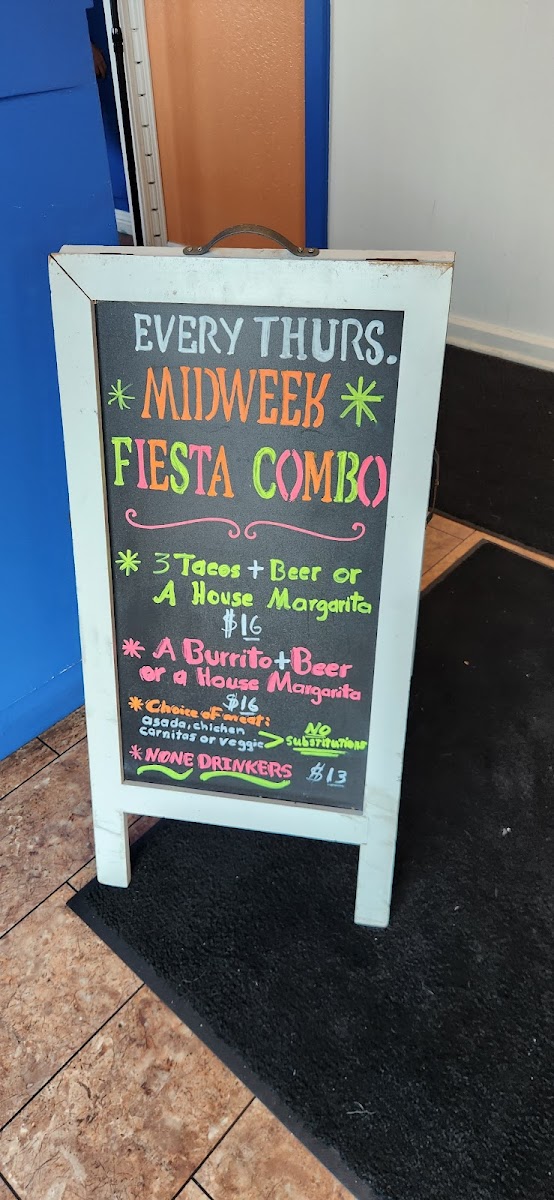 EVERY THURS.
* MIDWEEK *
FIESTA COMBO
* 3 Tacos + Beer or
A House Margarita
$16
* A Burrito + Beer
or a House Margarita
$16
* Choice of meat:
asada, chichen
carnitas or veggie > NO
substitutions
* NONE DRINKERS $13